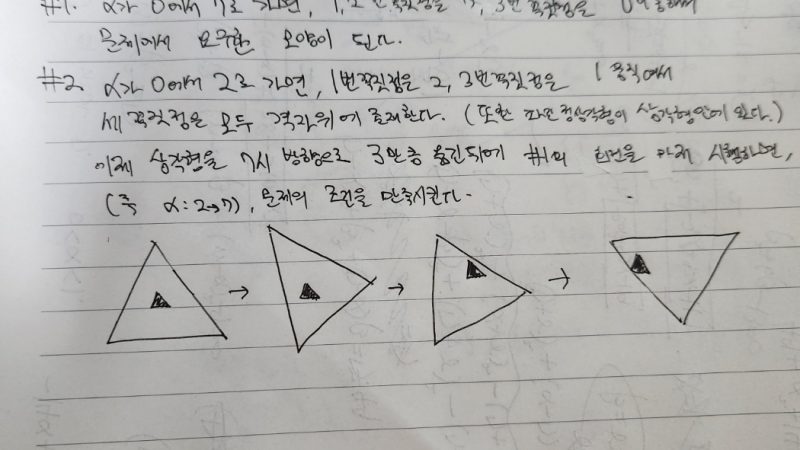 #1. α가 0에서 7로 가면, 1, 2번 꼭짓점은 3번 꼭짓점을
문제에서 요구한 모양이 된다.
#2. α가 0에서 2로 가면, 1번꼭짓점은 2, 3번꼭짓점은 1 움직여서
세 꼭짓점은 모두 격자위에 존재한다. (또한 정삼각형이 삼각형안에 있다.)
이제 삼각형을 7시 방향으로 3만큼 옮긴뒤에 #1의 회전을 마저 시행하면,
(즉 α: 2→7), 문제의 조건을 만족시킨다.